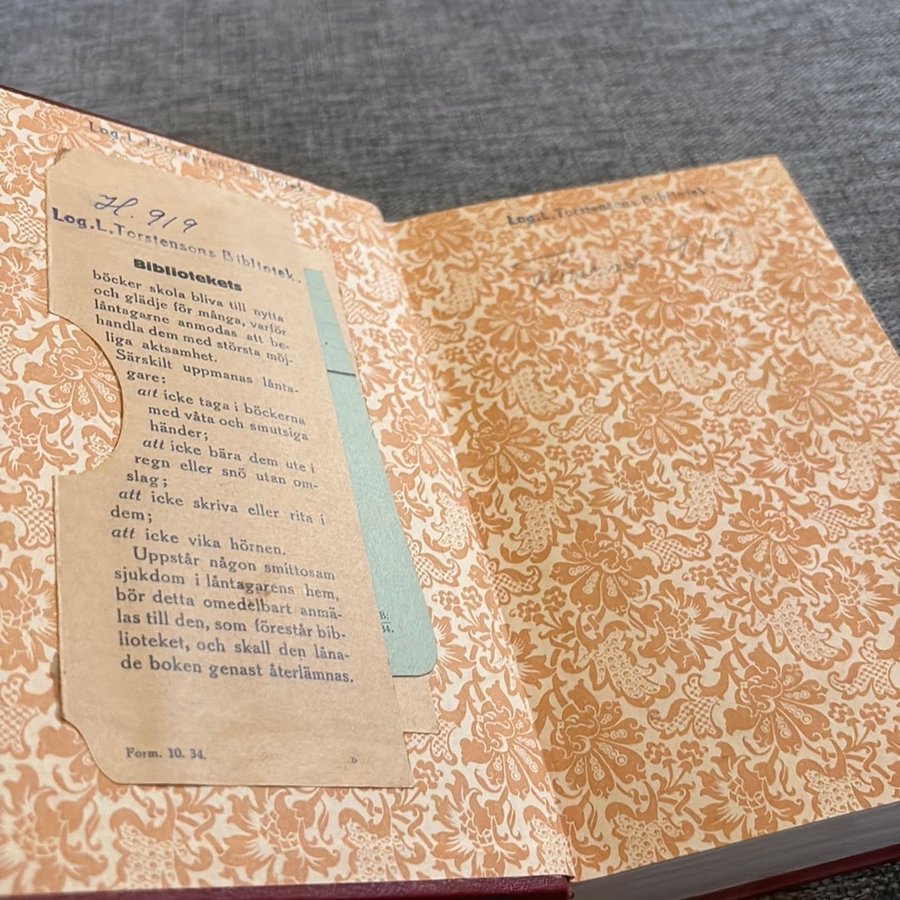 Log.L.Torstensons Bibliotek.
H. 919
Log.L.Torstensons Bibliotek.
Bibliotekets
böcker skola bliva till nytta
och glädje för många, varför
låntagarne anmodas att be-
handla dem med största möj-
liga aktsamhet.
Särskilt uppmanas lånta-
gare:
att icke taga i böckerna
med våta och smutsiga
händer;
att icke bära dem ute i
regn eller snö utan om-
slag;
att icke skriva eller rita i
dem;
att icke vika hörnen.
Uppstår någon smittosam
sjukdom i låntagarens hem,
bör detta omedelbart anmä-
las till den, som förestår bib-
lioteket, och skall den låna-
de boken genast återlämnas.
Form. 10. 34.
B:
34.
Log.L.Torstensons Bibliotek.
919